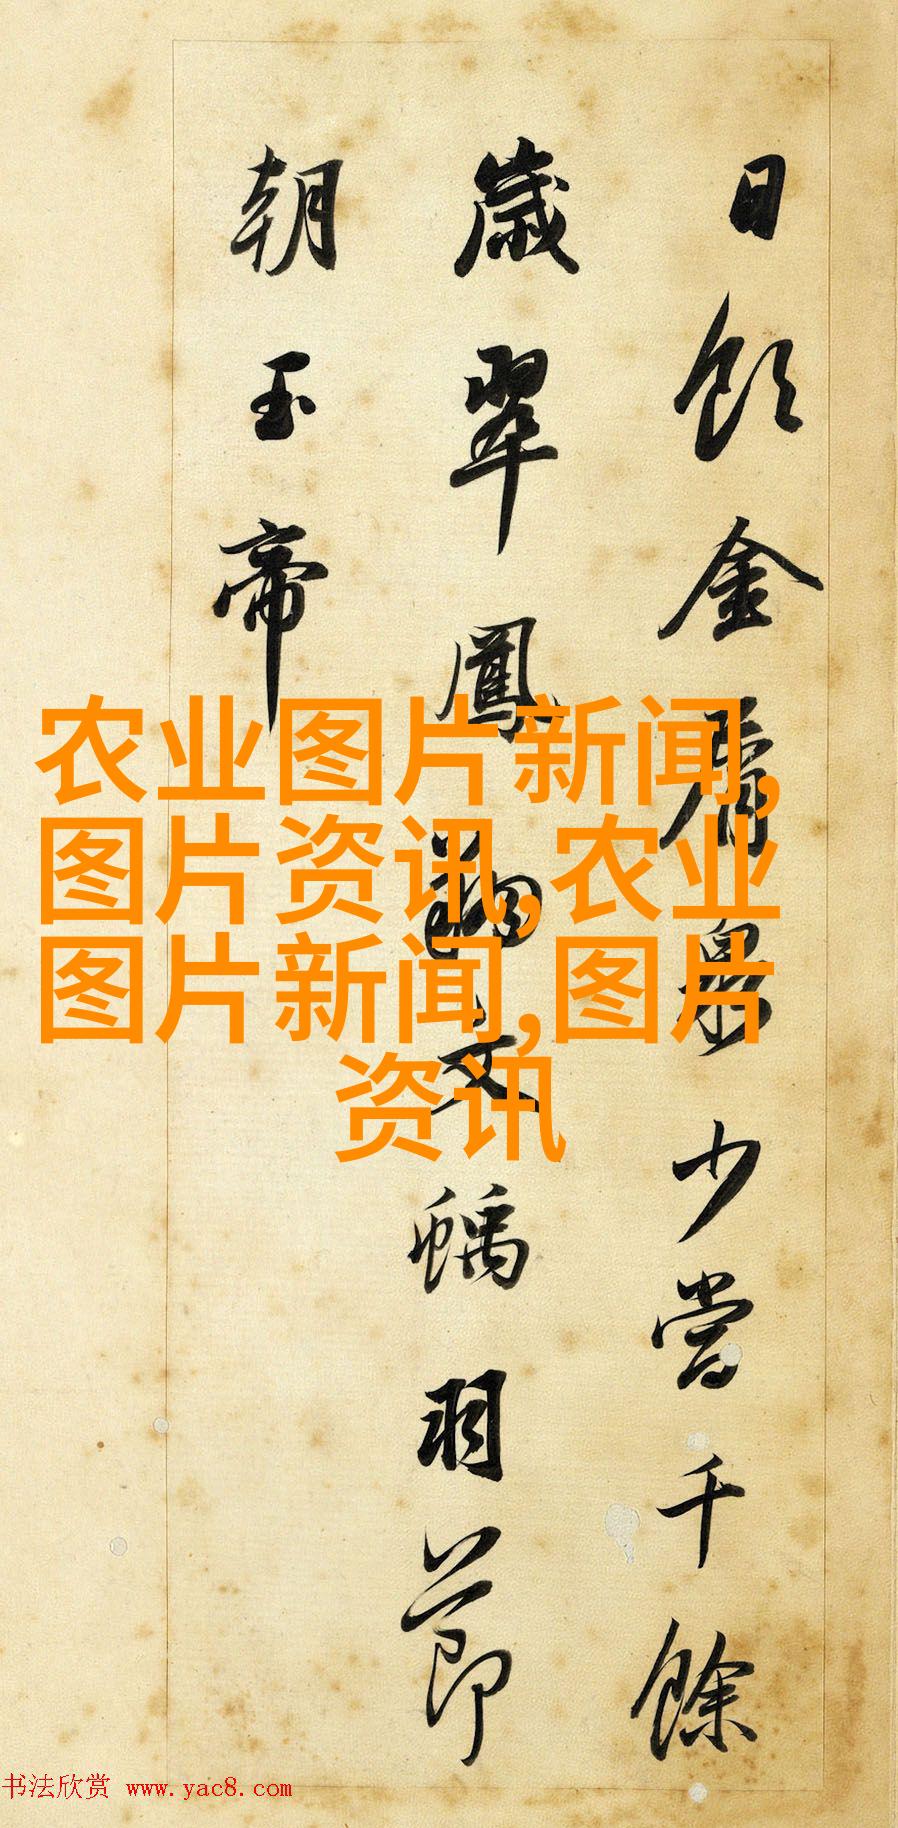 日飲金屑泉少當千餘
歲翠鳳翔文螭羽節
朝玉帝
农业图片新闻,
图片资讯,农业
图片新闻,图片
资讯
书法欣赏 www.yac8.com